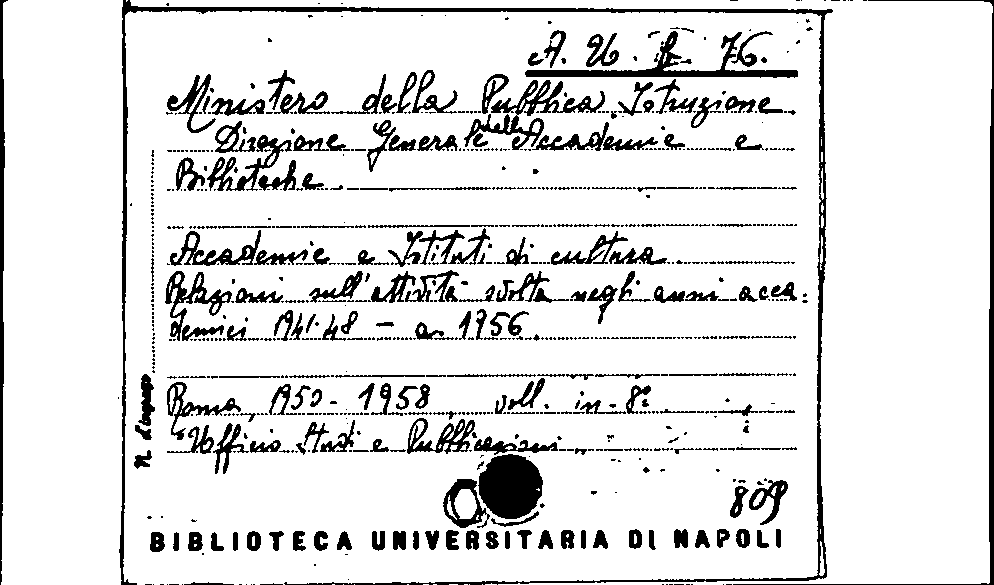 A. U. 76.
Ministero della Pubblica Istruzione
Direzione Generale delle Accademie e
Biblioteche.
Accademie e Istituti di cultura.
Relazioni sull'attività svolta negli anni acca-
demici 1941-48 - a. 1956.
Roma, 1950-1958, voll. in-8°.
"Ufficio Studi e Pubblicazioni"
N. d'ingresso
809
BIBLIOTECA UNIVERSITARIA DI NAPOLI